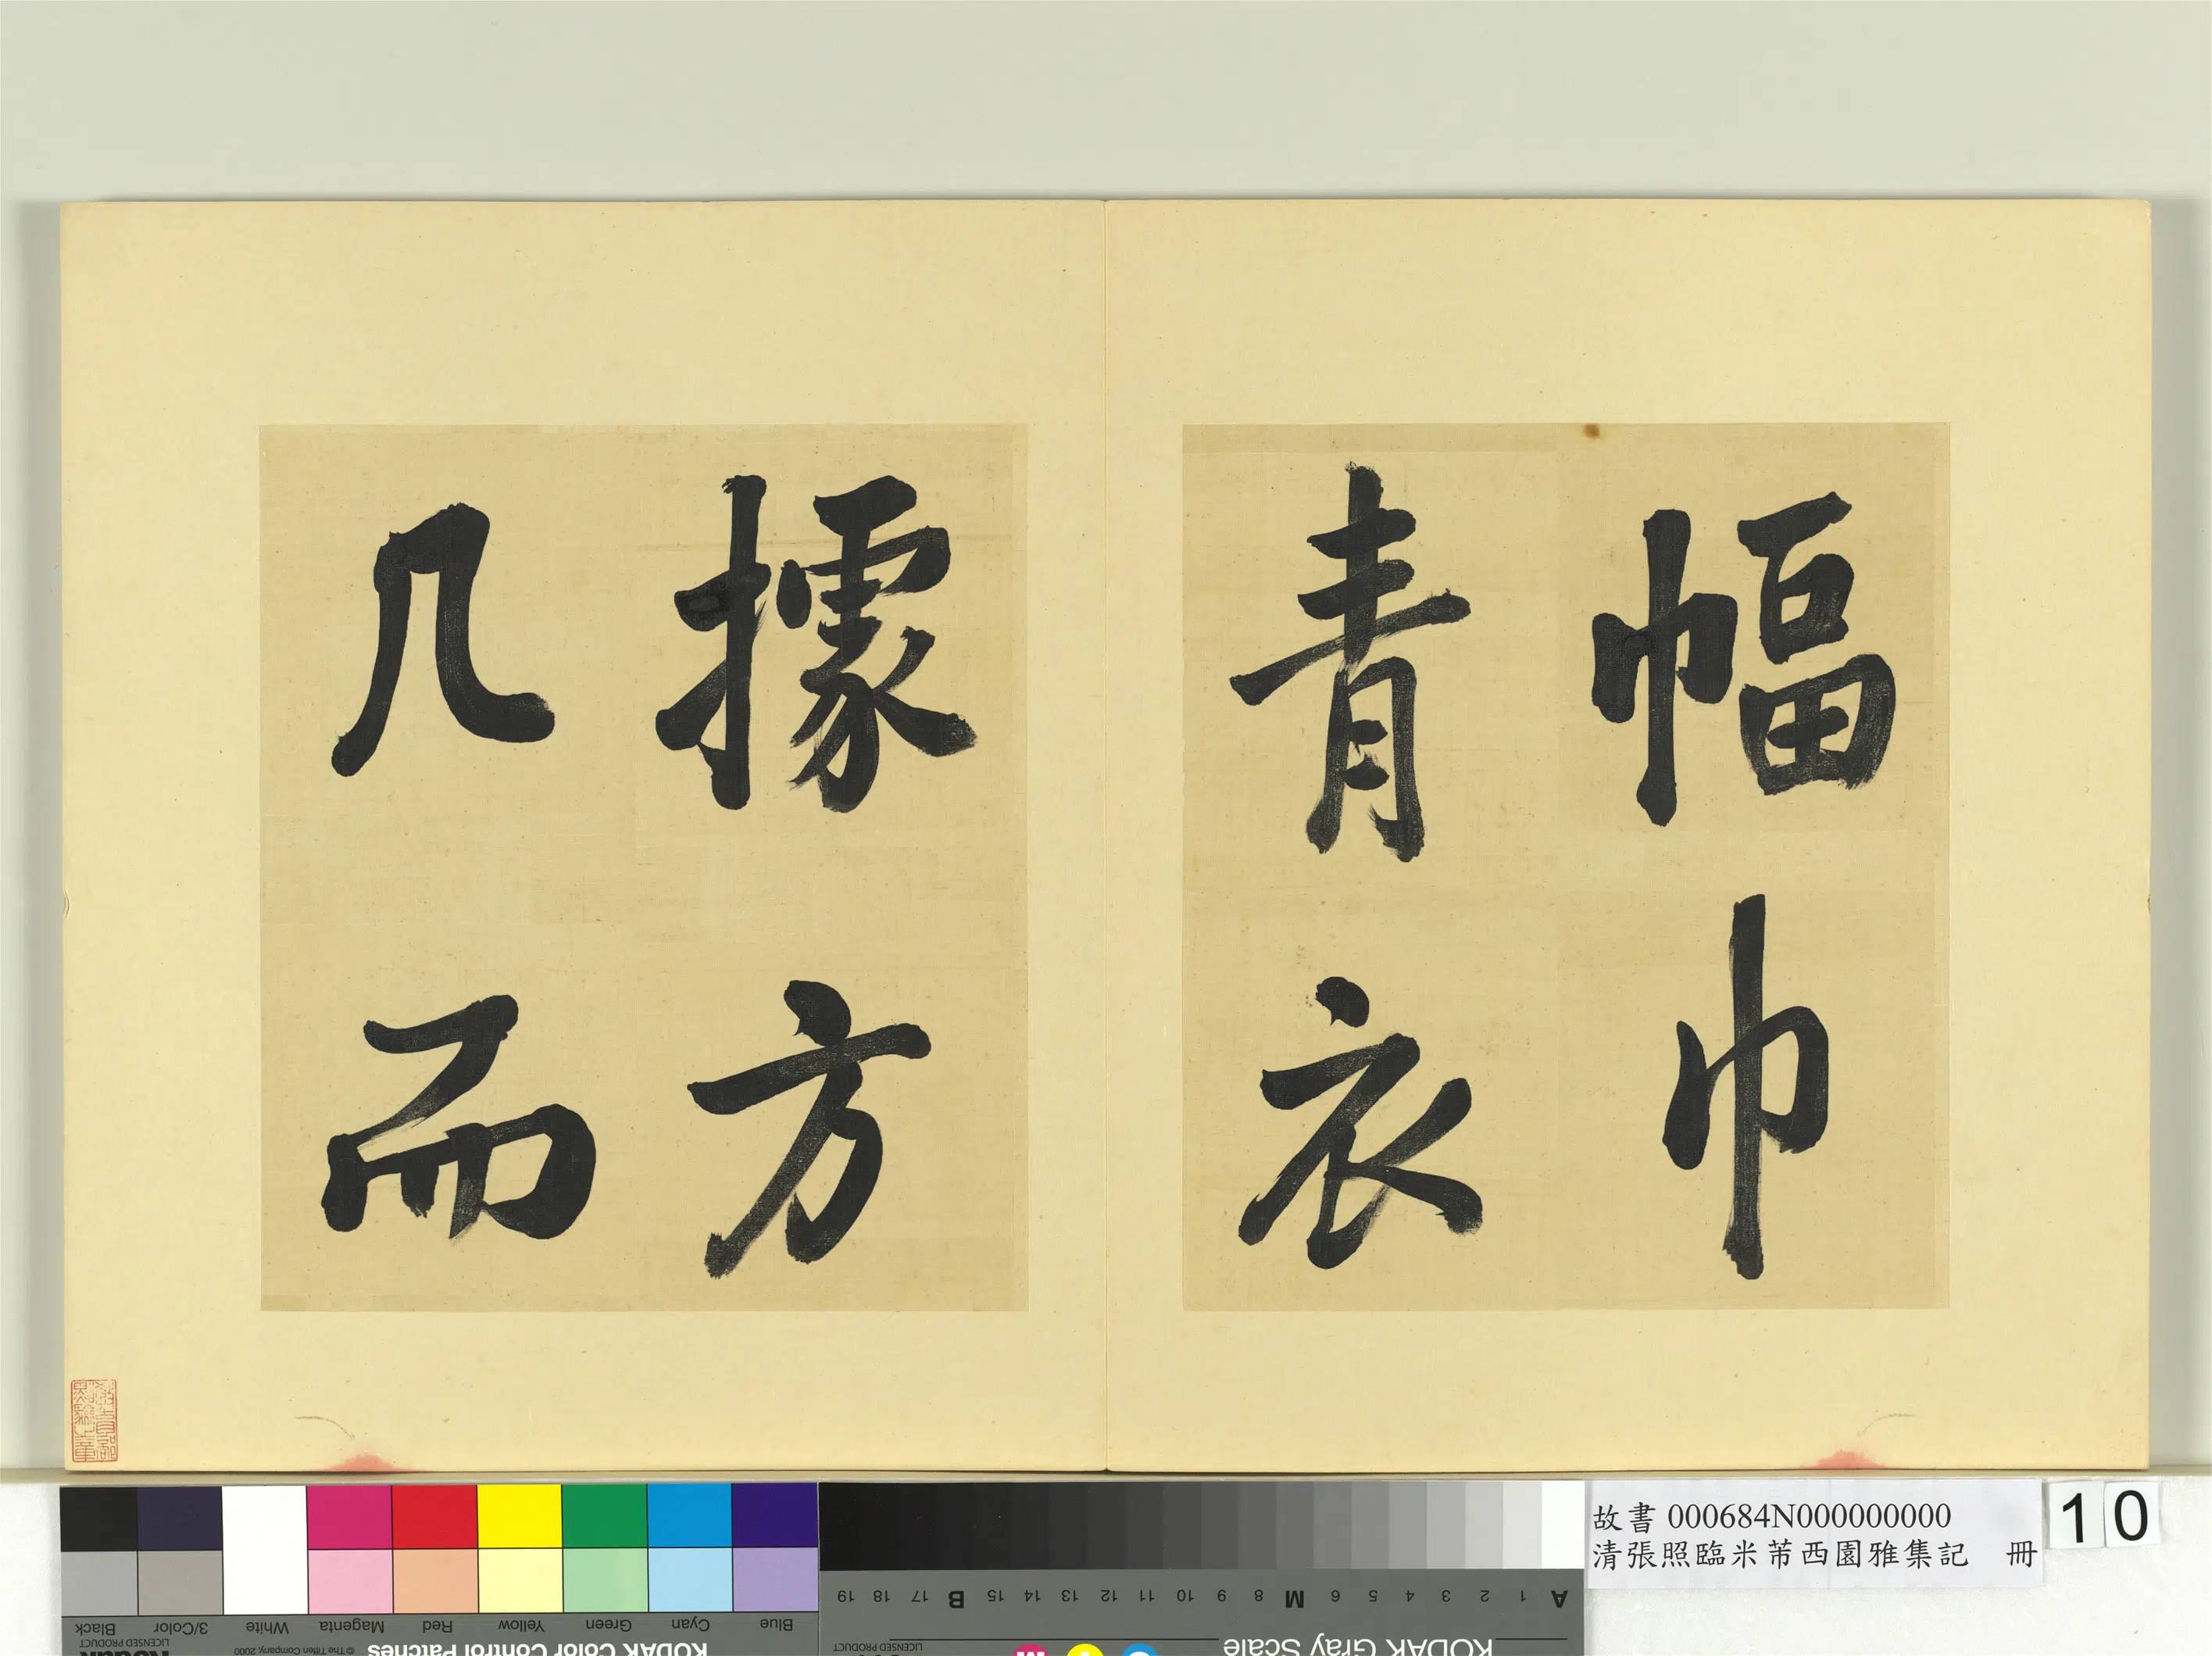 幅巾
青衣
據方
几而
故書 000684N000000000
清張照臨米芾西園雅集記 冊
10
Blue
Cyan
Green
Yellow
Red
Magenta
White
3/Color
Black
KODAK Color Control Patches
© The Tiffen Company, 2000
Kodak
LICENSED PRODUCT
A 1 2 3 4 5 6 M 8 9 10 11 12 13 14 15 B 17 18 19
KODAK Gray Scale
LICENSED PRODUCT